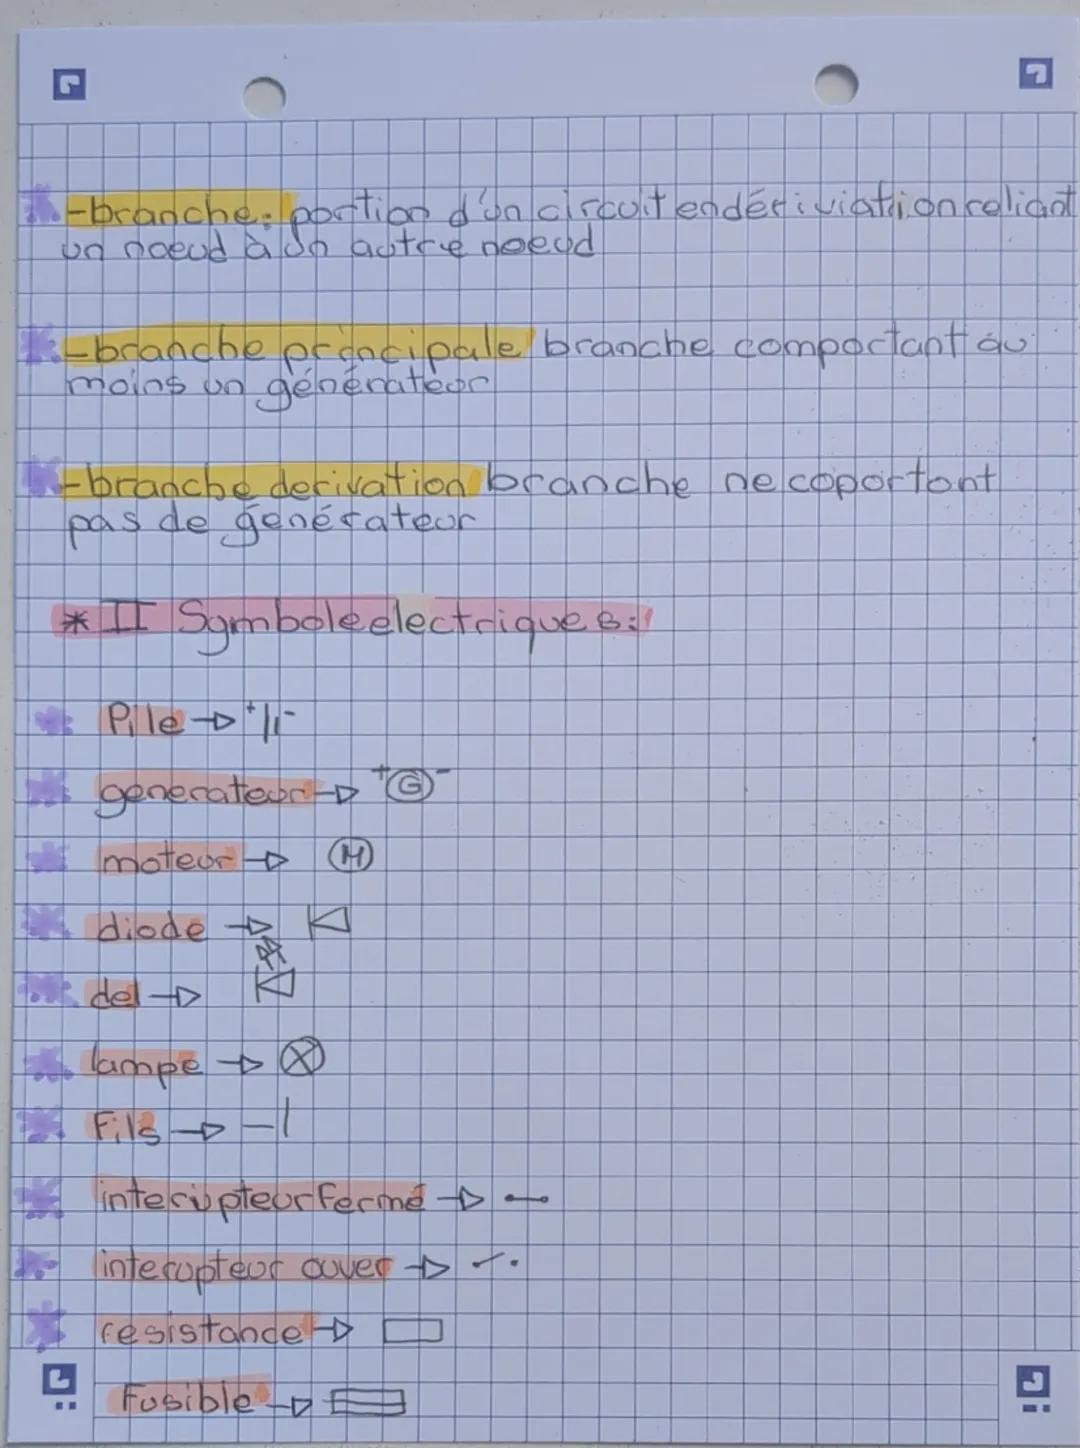 -branche: portion d'un circuit en dériviation reliant
un noeud à un autre noeud
-branche principale branche comportant au
moins un générateur
-branche derivation branche ne coportont
pas de générateur
* II Symbole electriques:
Pile → + -
generateur → + G -
moteur → M
diode →
del →
lampe →
Fils →
interupteur Fermé →
interupteur ouver →
resistande →
Fusible →